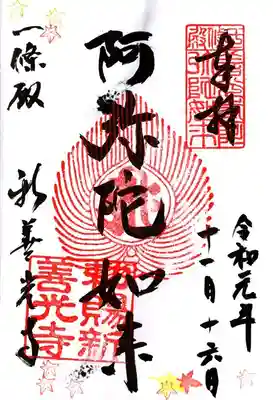 奉拝
令和元年
十一月十六日
阿弥陀如来
一條殿
新善光寺
勅賜新
善光寺